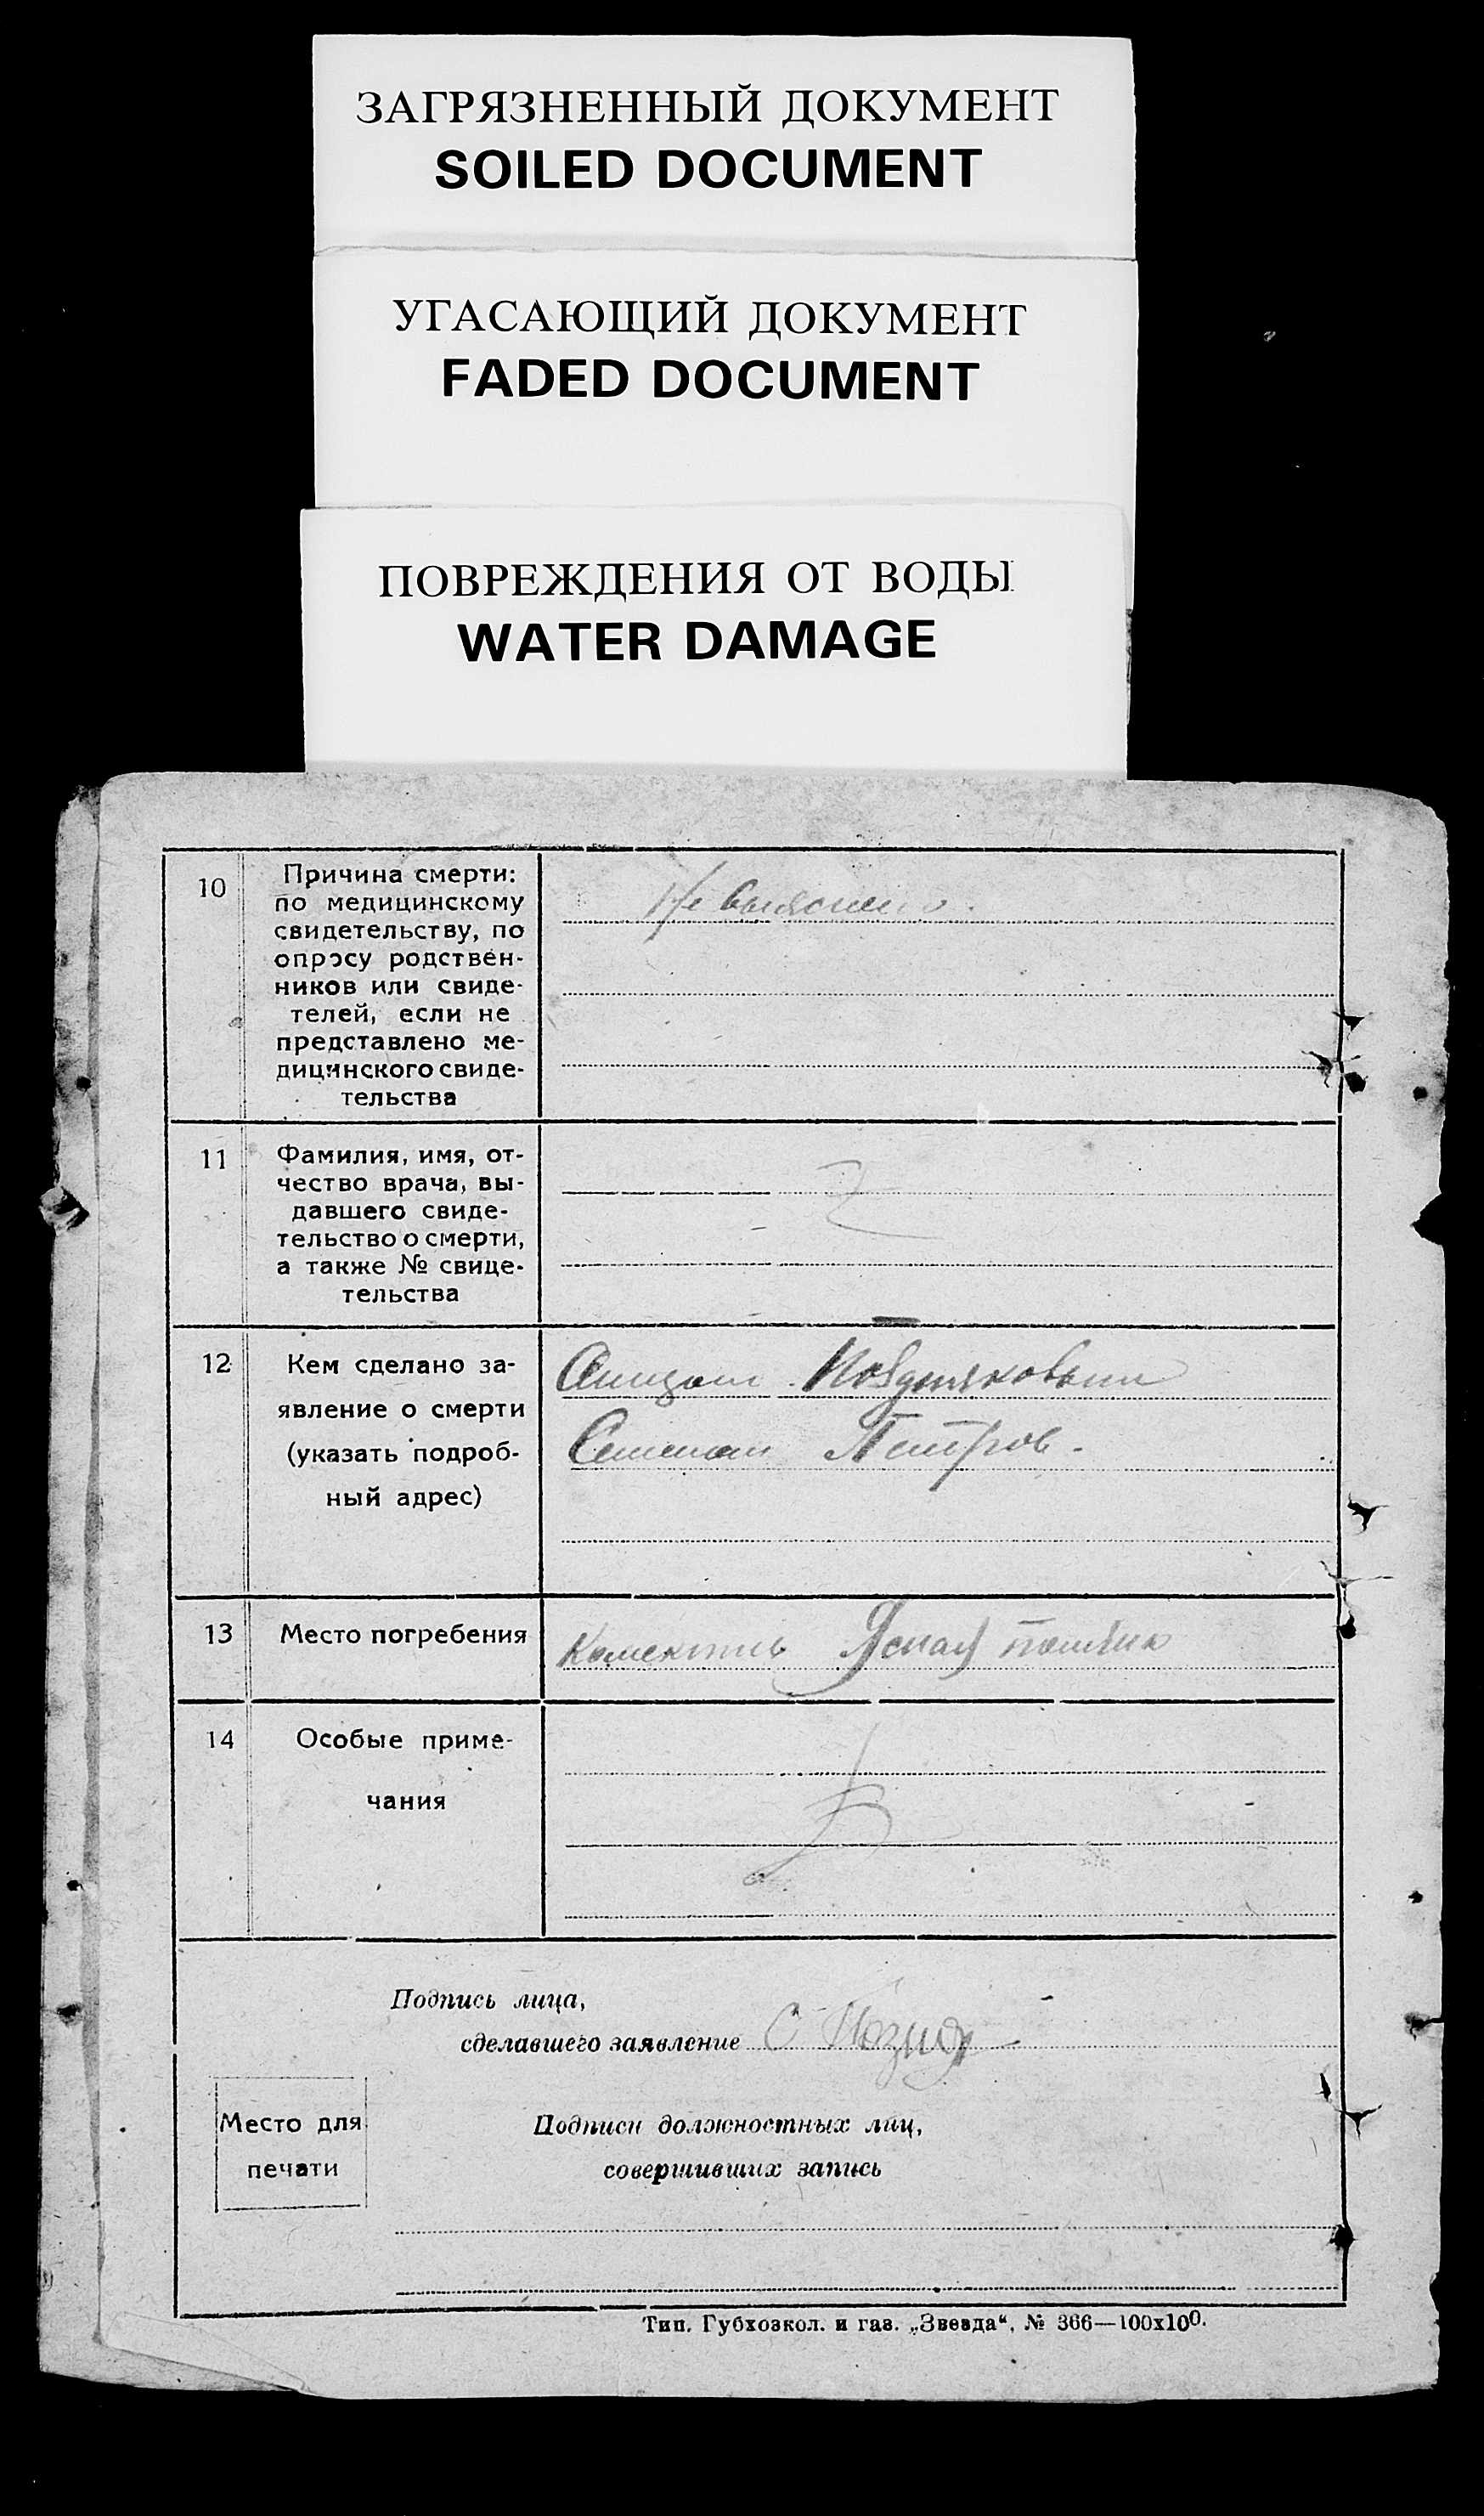 ЗАГРЯЗНЕННЫЙ ДОКУМЕНТ
SOILED DOCUMENT
УГАСАЮЩИЙ ДОКУМЕНТ
FADED DOCUMENT
ПОВРЕЖДЕНИЯ ОТ ВОДЫ
WATER DAMAGE
10
Причина смерти:
по медицинскому
свидетельству, по
опросу родствен-
ников или свиде-
телей, если не
представлено ме-
дицинского свиде-
тельства
Не выяснено.
11
Фамилия, имя, от-
чество врача, вы-
давшего свиде-
тельство о смерти,
а также № свиде-
тельства
12
Кем сделано за-
явление о смерти
(указать подроб-
ный адрес)
Поздняковым
Семеном Петров.
13
Место погребения
Ясная
14
Особые приме-
чания
Подпись лица,
сделавшего заявление С Позня
Место для
печати
Подписи должностных лиц,
совершивших запись
Тип. Губхозкол. и газ. „Звезда“, № 366—100х100.